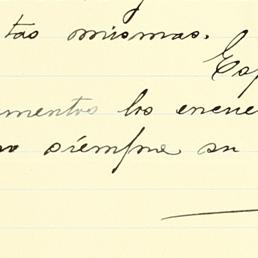 tas mismas.
Esp
mentos los encue
o siempre su